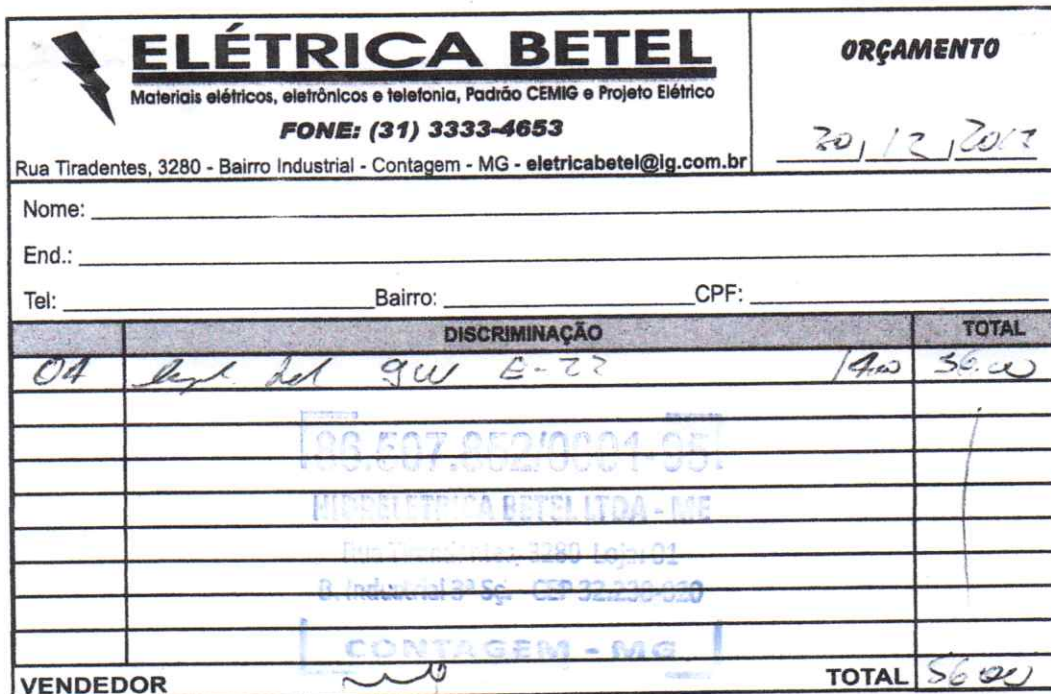 ELÉTRICA BETEL
Materiais elétricos, eletrônicos e telefonia, Padrão CEMIG e Projeto Elétrico
FONE: (31) 3333-4653
Rua Tiradentes, 3280 - Bairro Industrial - Contagem - MG - eletricabetel@ig.com.br
ORÇAMENTO
Nome:
End.:
Tel: Bairro: CPF:
DISCRIMINAÇÃO TOTAL
04 9W 56.00
HIDRELETRICA BETEL LTDA - ME
3280 Loja: 01
B. Industrial 3ª Sç. - CEP
CONTAGEM - MG
VENDEDOR TOTAL 56.00